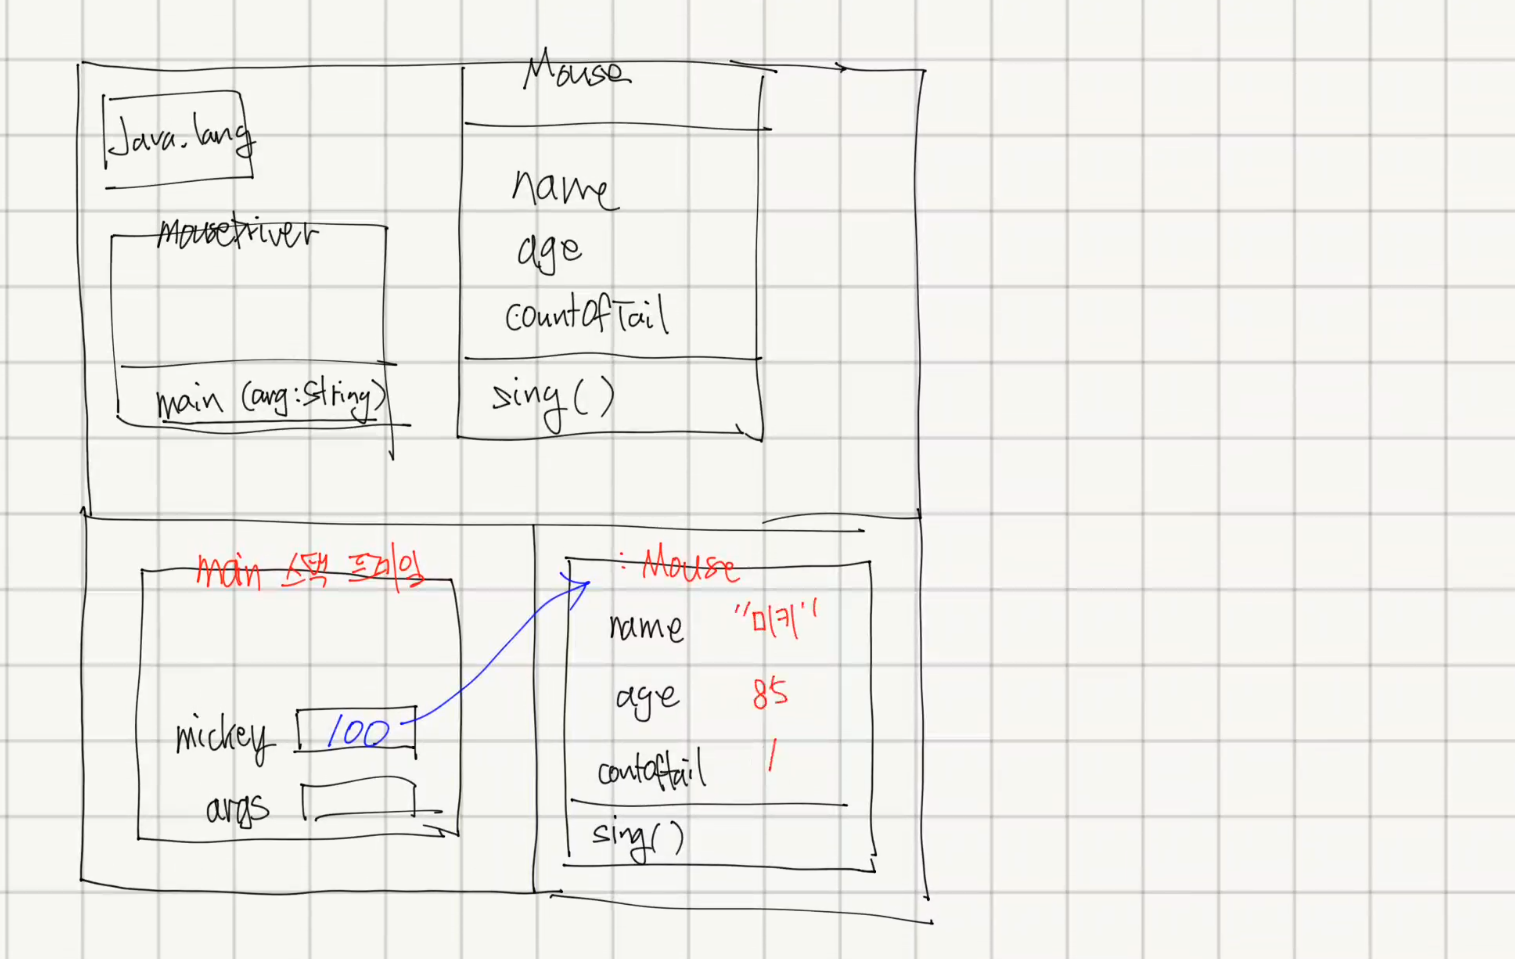 Java.lang
MouseDriver
main (arg:String)
Mouse
name
age
countOfTail
sing()
main 스택 프레임
mickey 100
args
: Mouse
name "미키"
age 85
contOftail 1
sing()